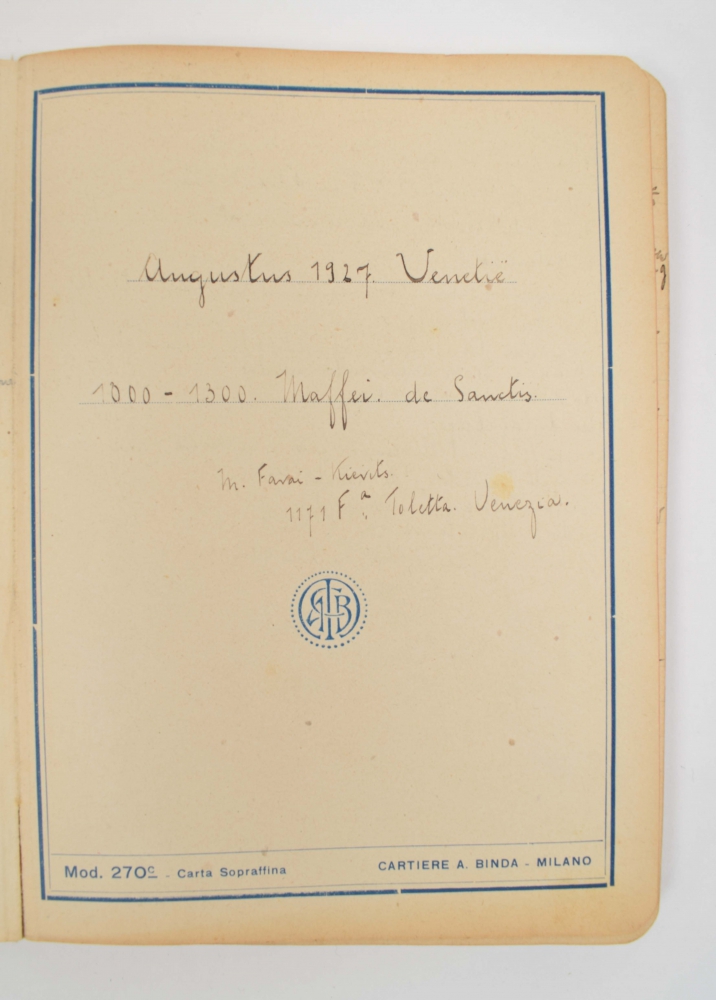 Augustus 1927. Venetië
1000 - 1300. Maffei. de Sanctis.
M. Favai - Kievits.
1171 Fª Toletta. Venezia.
Mod. 270c - Carta Sopraffina
CARTIERE A. BINDA - MILANO